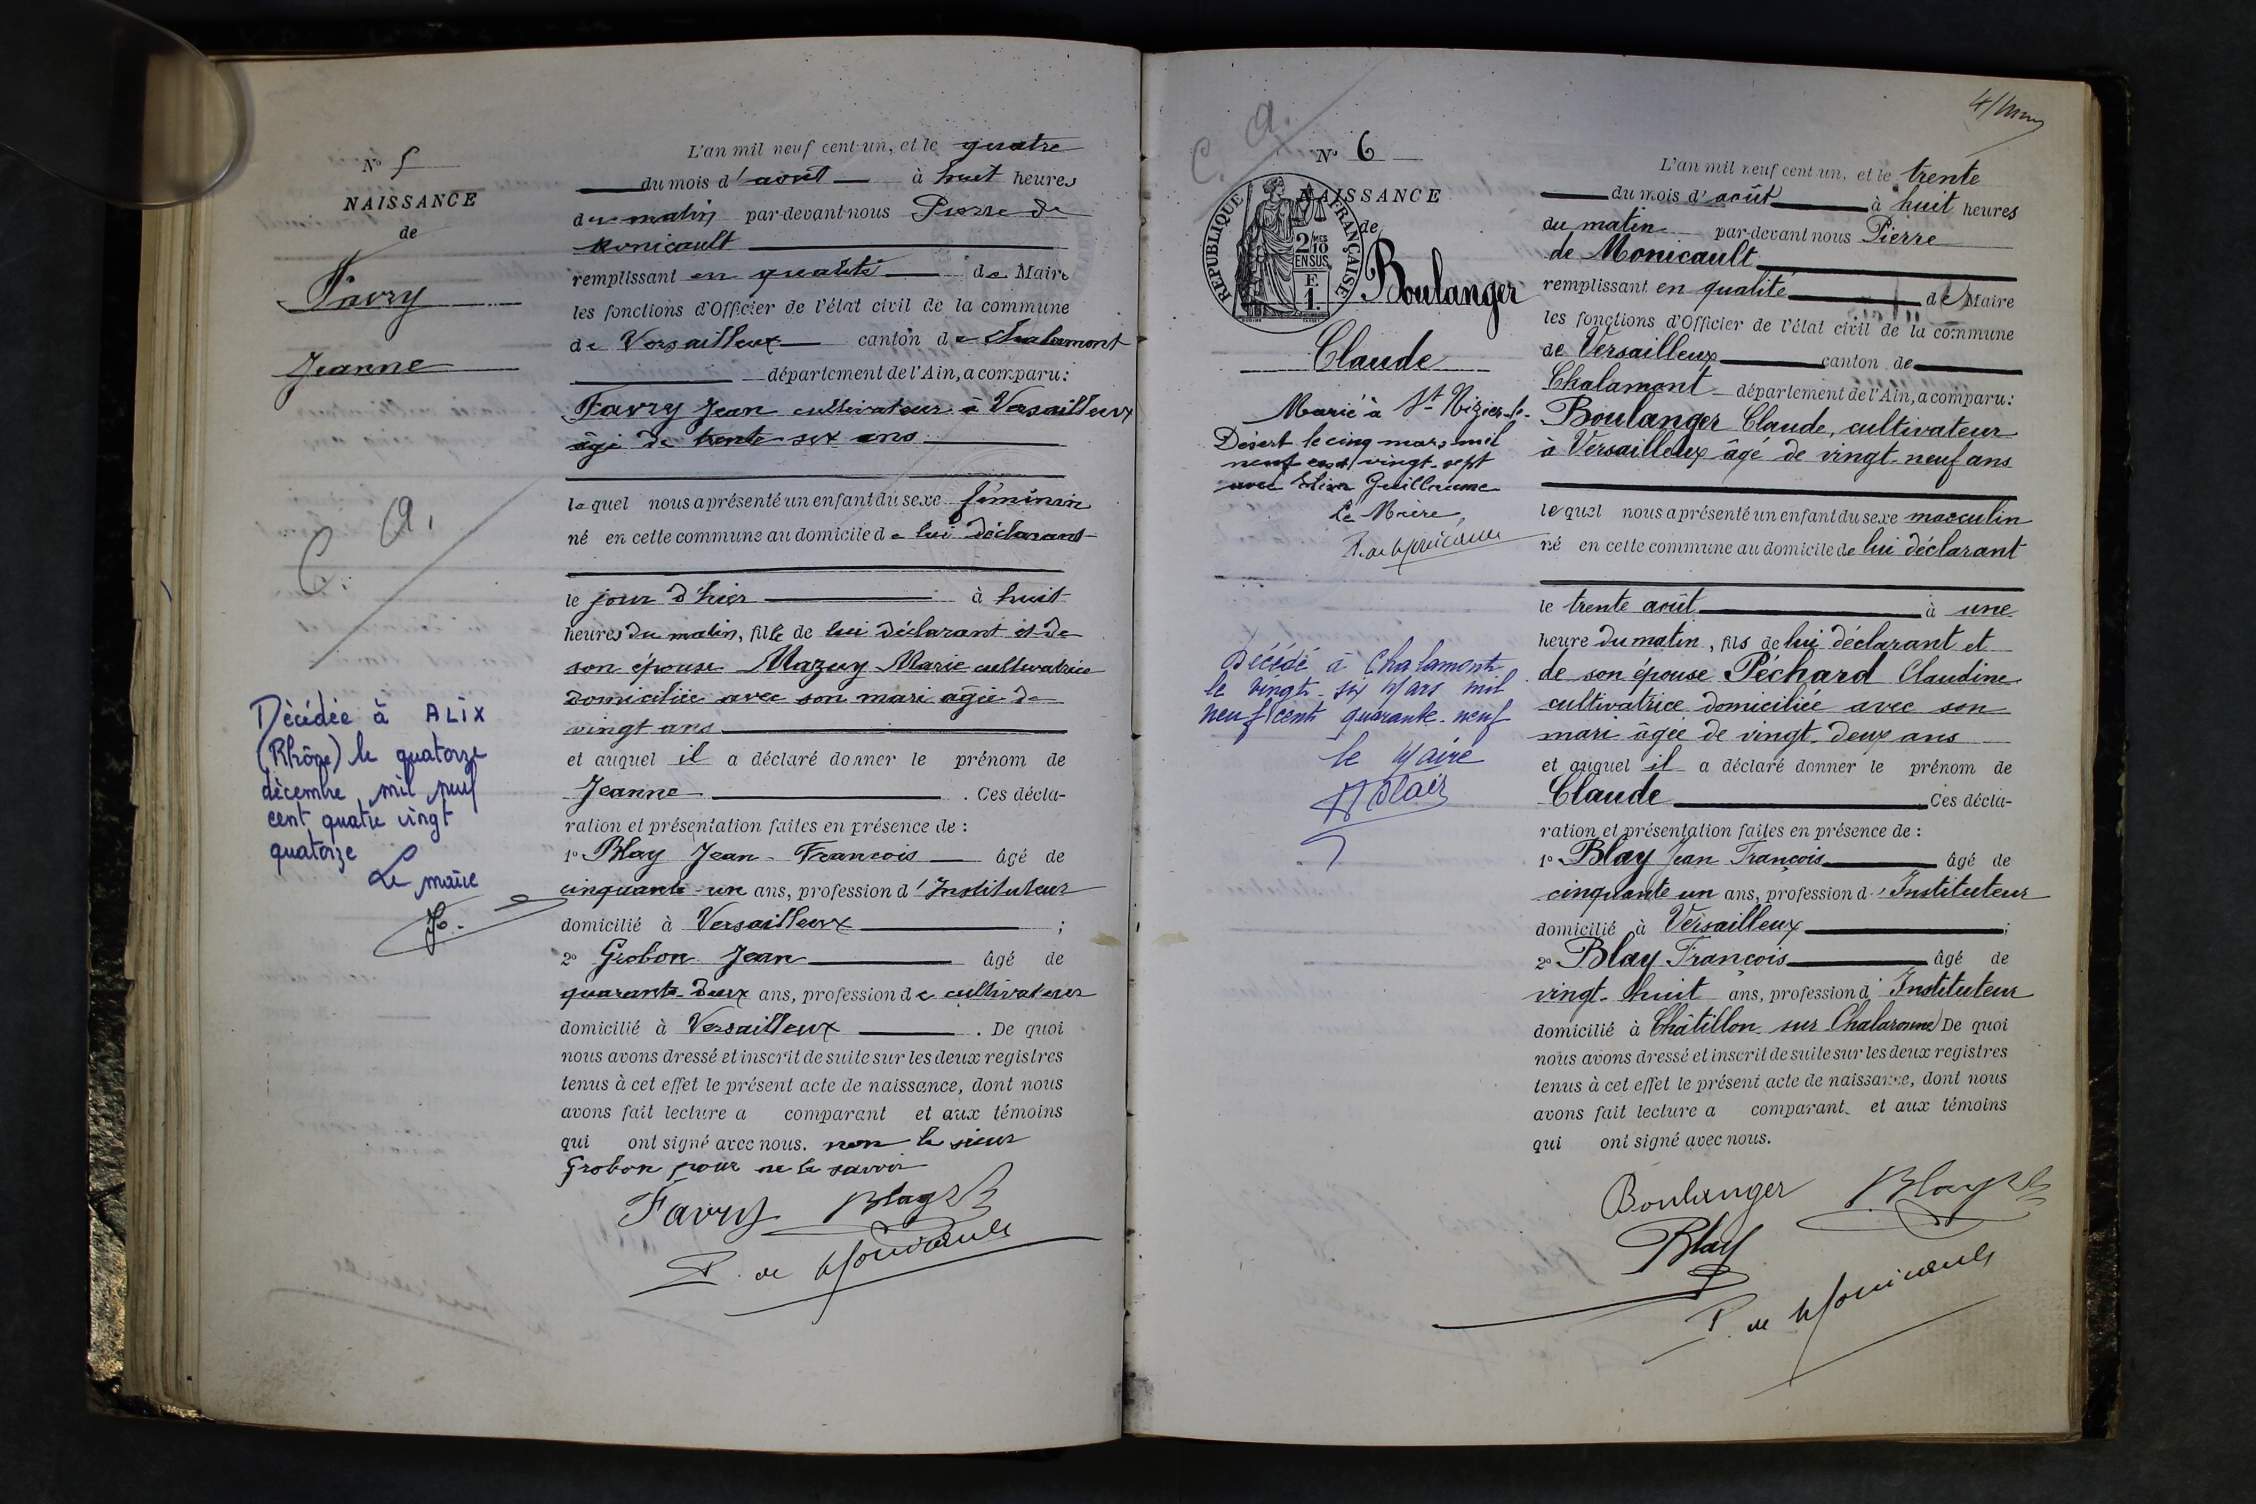 N° 5
NAISSANCE
de
Favry
Jeanne
C. A.
Décédée à ALIX
(Rhône) le quatorze
décembre mil neuf
cent quatre vingt
quatorze
Le maire
L'an mil neuf cent un, et le quatre
du mois d'août à huit heures
du matin par-devant nous Pierre de
Monicault
remplissant en qualité de Maire
les fonctions d'Officier de l'état civil de la commune
de Versailleux canton de Chalamont
département de l'Ain, a comparu:
Favry Jean cultivateur à Versailleux
âgé de trente six ans
lequel nous a présenté un enfant du sexe féminin
né en cette commune au domicile de lui déclarant
le jour d'hier à huit
heures du matin, fille de lui déclarant et de
son épouse Mazuy Marie cultivatrice
domiciliée avec son mari âgée de
vingt ans
et auquel il a déclaré donner le prénom de
Jeanne . Ces décla-
ration et présentation faites en présence de :
1° Blay Jean-François âgé de
cinquante-un ans, profession d'Instituteur
domicilié à Versailleux ;
2° Grobon Jean âgé de
quarante-deux ans, profession de cultivateur
domicilié à Versailleux . De quoi
nous avons dressé et inscrit de suite sur les deux registres
tenus à cet effet le présent acte de naissance, dont nous
avons fait lecture a comparant et aux témoins
qui ont signé avec nous. non le sieur
Grobon pour ne le savoir
Favry Blay
P. de Monicault
4/
C. A.
N° 6
NAISSANCE
de
RÉPUBLIQUE FRANÇAISE
2/10 MES
EN SUS
E
1
Boulanger
Claude
Marié à St Nizier-le-
Désert le cinq mars mil
neuf cent vingt-sept
avec Elisa Guillaume
Le Maire,
P. de Monicault
Décédé à Chalamont
le vingt-six Mars mil
neuf cent quarante-neuf
le Maire
L'an mil neuf cent un, et le trente
du mois d'août à huit heures
du matin par-devant nous Pierre
de Monicault
remplissant en qualité de Maire
les fonctions d'Officier de l'état civil de la commune
de Versailleux canton de
Chalamont département de l'Ain, a comparu:
Boulanger Claude, cultivateur
à Versailleux âgé de vingt-neuf ans
lequel nous a présenté un enfant du sexe masculin
né en cette commune au domicile de lui déclarant
le trente août à une
heure du matin, fils de lui déclarant et
de son épouse Péchard Claudine
cultivatrice domiciliée avec son
mari âgée de vingt-deux ans
et auquel il a déclaré donner le prénom de
Claude Ces décla-
ration et présentation faites en présence de :
1° Blay Jean François âgé de
cinquante un ans, profession d'Instituteur
domicilié à Versailleux ;
2° Blay François âgé de
vingt-huit ans, profession d'Instituteur
domicilié à Châtillon sur Chalaronne De quoi
nous avons dressé et inscrit de suite sur les deux registres
tenus à cet effet le présent acte de naissance, dont nous
avons fait lecture a comparant et aux témoins
qui ont signé avec nous.
Boulanger Blay
Blay
P. de Monicault